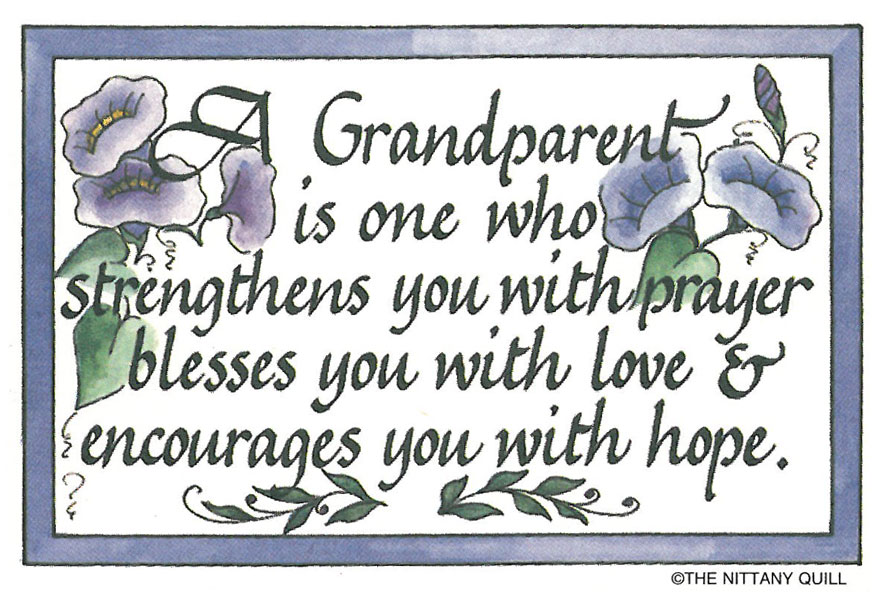 A Grandparent
is one who
strengthens you with prayer
blesses you with love &
encourages you with hope.
©THE NITTANY QUILL